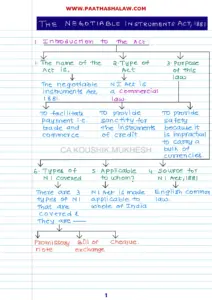 WWW.PAATHASHALAW.COM
THE NEGOTIABLE INSTRUMENTS ACT, 1881
1. Introduction to the Act
1. The name of the Act is.
2 Type of Act
3 Purpose of this law
The negotiable instruments Act, 1881
NI Act is a commercial law
To facilitate payment in trade and commerce
TO provide sanctity for the instruments of credit
TO provide safety because it is impractical to carry a bulk of currencies
CA KOUSHIK MUKHESH
6. Types of NI covered
5 Applicable to whom?
4 Source for NI Act, 1881
There are 3 types of NI that are covered &
They are
NI Act is made applicable to whole of India
English Common law
Promissory note
Bill of exchange
Cheque
1